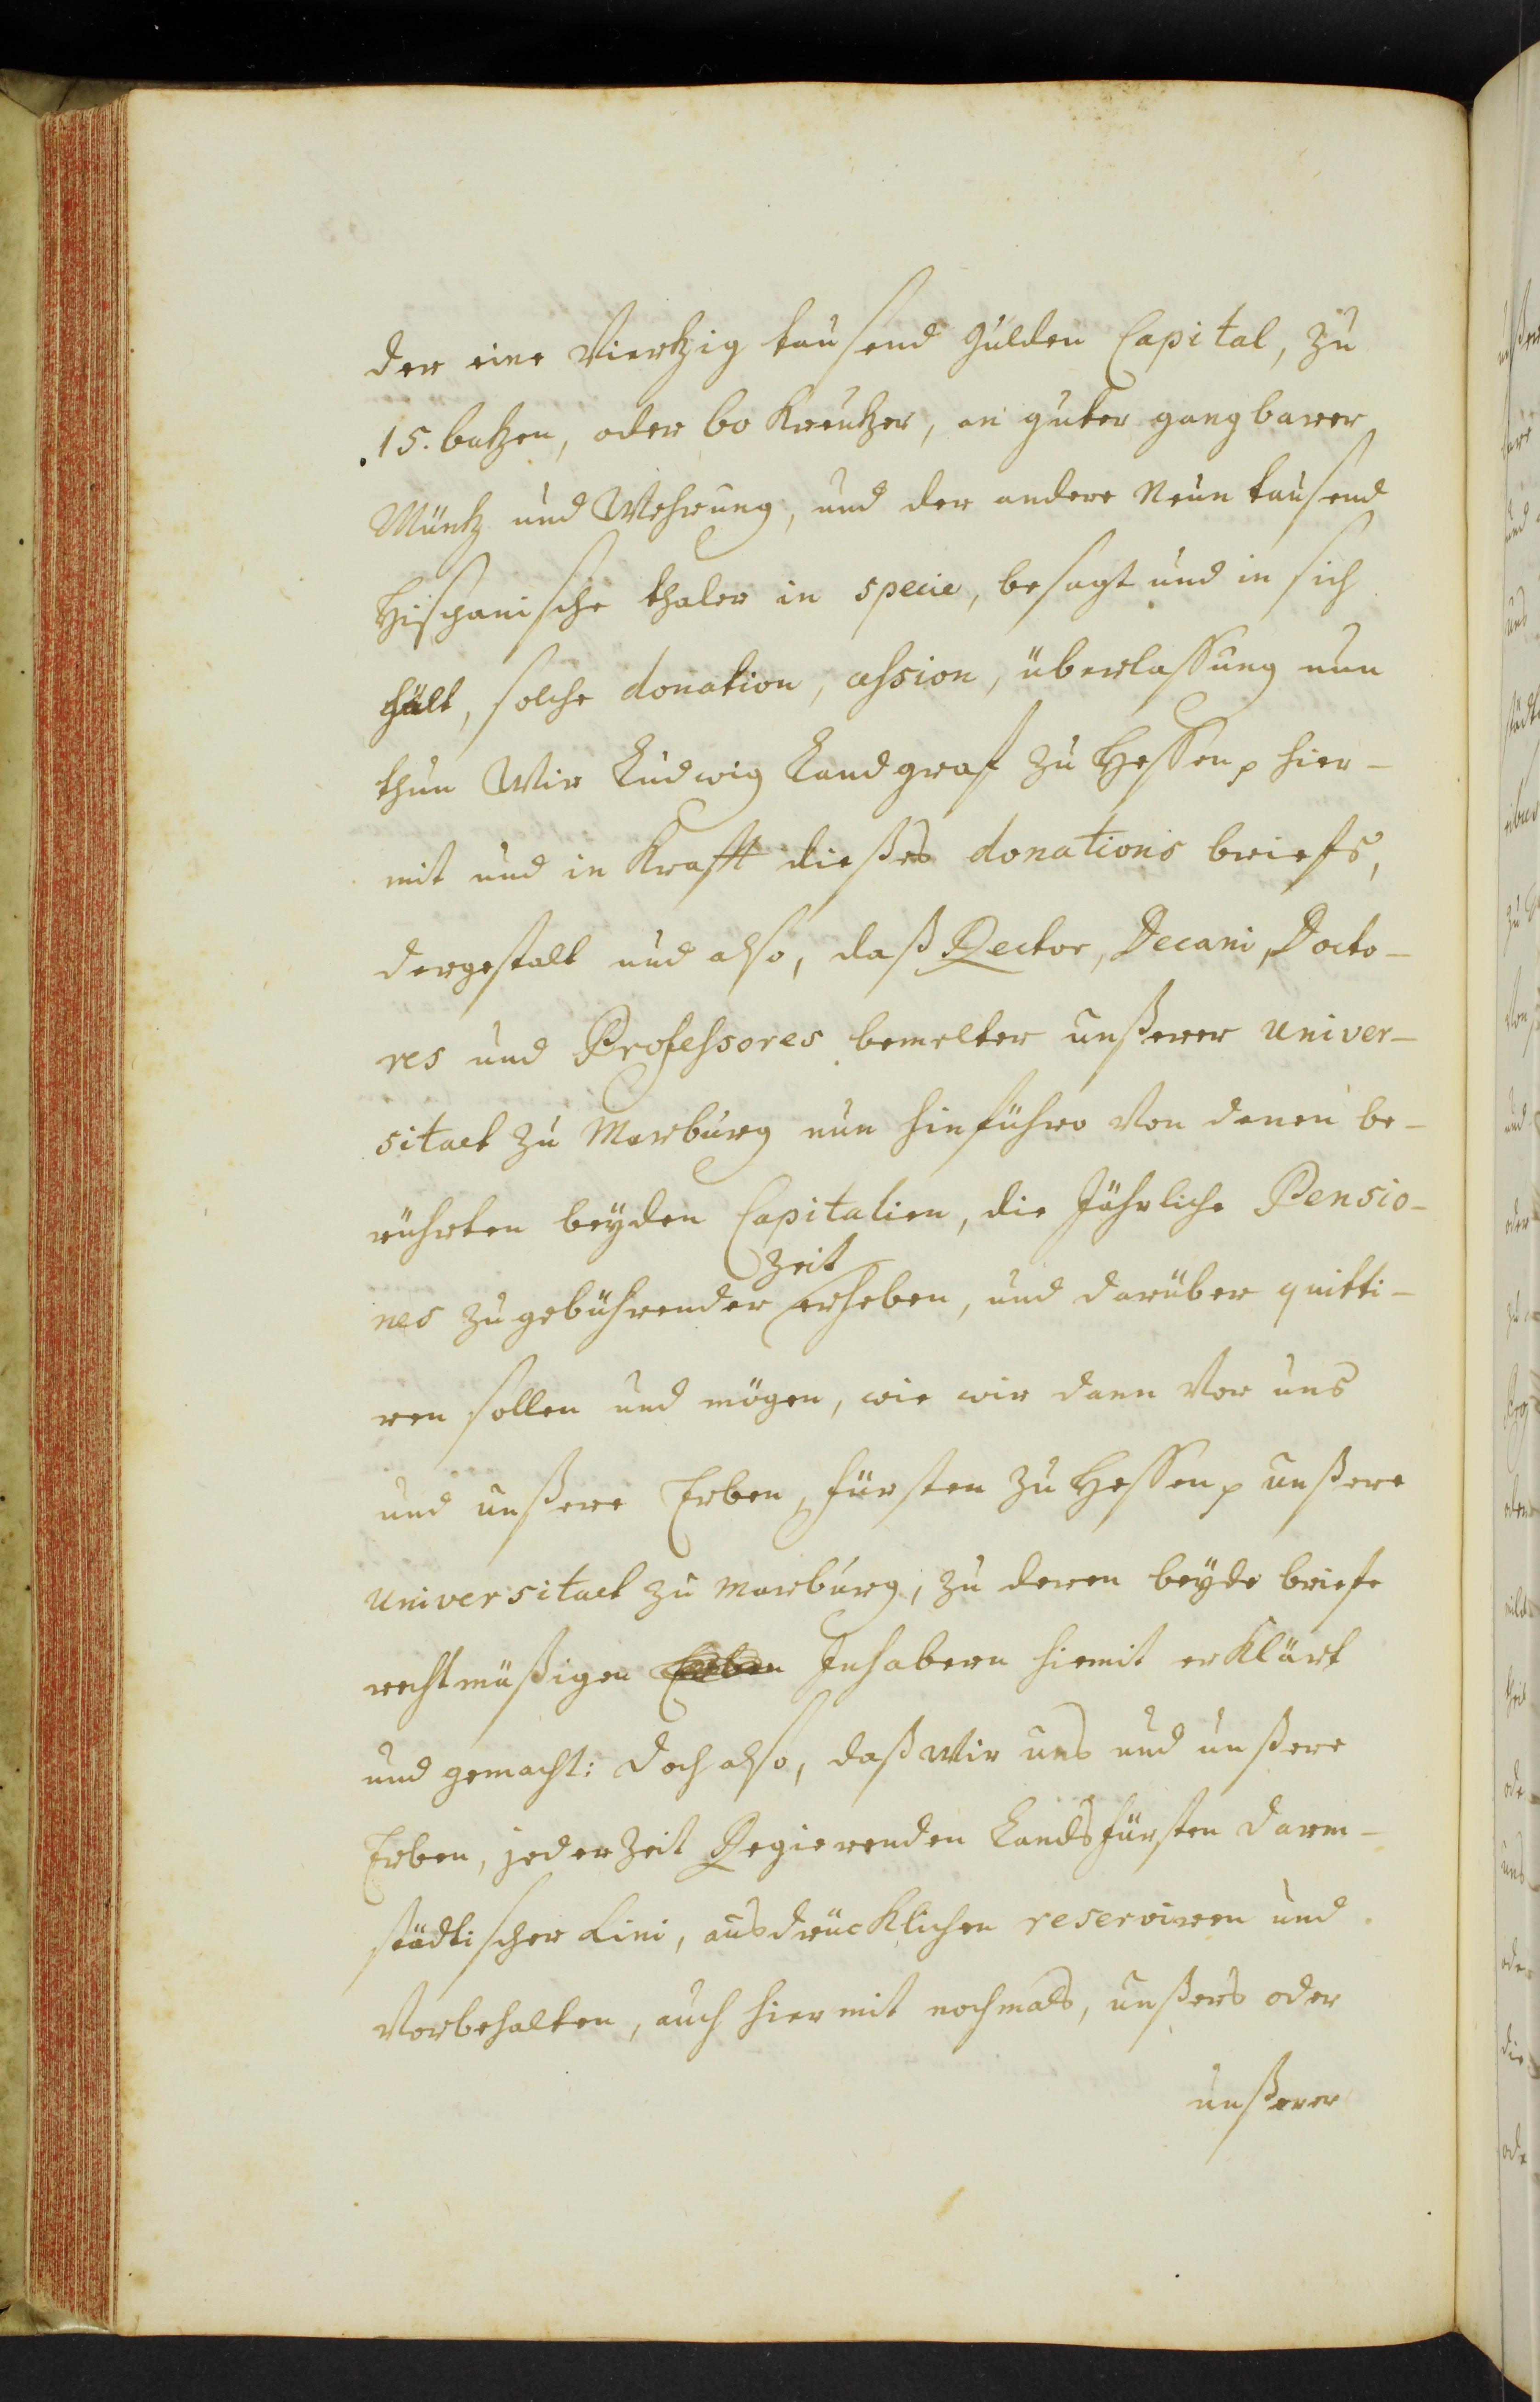 der eine Viertzig tausend Gulden Capital, zu
15. batzen, oder 60 Kreutzer, an guter gangbarer
Müntz und Wehrung, und der andere Neun tausend
Hispanische thaler in specie, besagt und in sich
hält, solche donation, cession, überlaßung nun
thun Wir Ludwig Landgraf zu Heßen p hier-
mit und in Krafft dießes donations briefs,
dergestalt und also, daß Rector, Decani, Docto-
res und Professores bemelter unßerer univer-
sitaet zu Marburg nun hinführo von denen be-
rührten beyden Capitalien, die Jährliche Pensio-
nes zu gebührender Zeit erheben, und darüber quitti-
ren sollen und mögen, wie wir dann vor uns
und unßere Erben, Fürsten zu Heßen p unßere
universitaet zu Marburg, zu deren beyde briefe
rechtmäßigen Erben Inhabern hiemit erklärt
und gemacht: doch also, daß Wir uns und unßere
Erben, jederzeit Regierenden Landsfürsten Darm-
städtischer Lini, ausdrücklichen reserviren und
vorbehalten, auch hiermit nochmals, unßers oder
unßerer